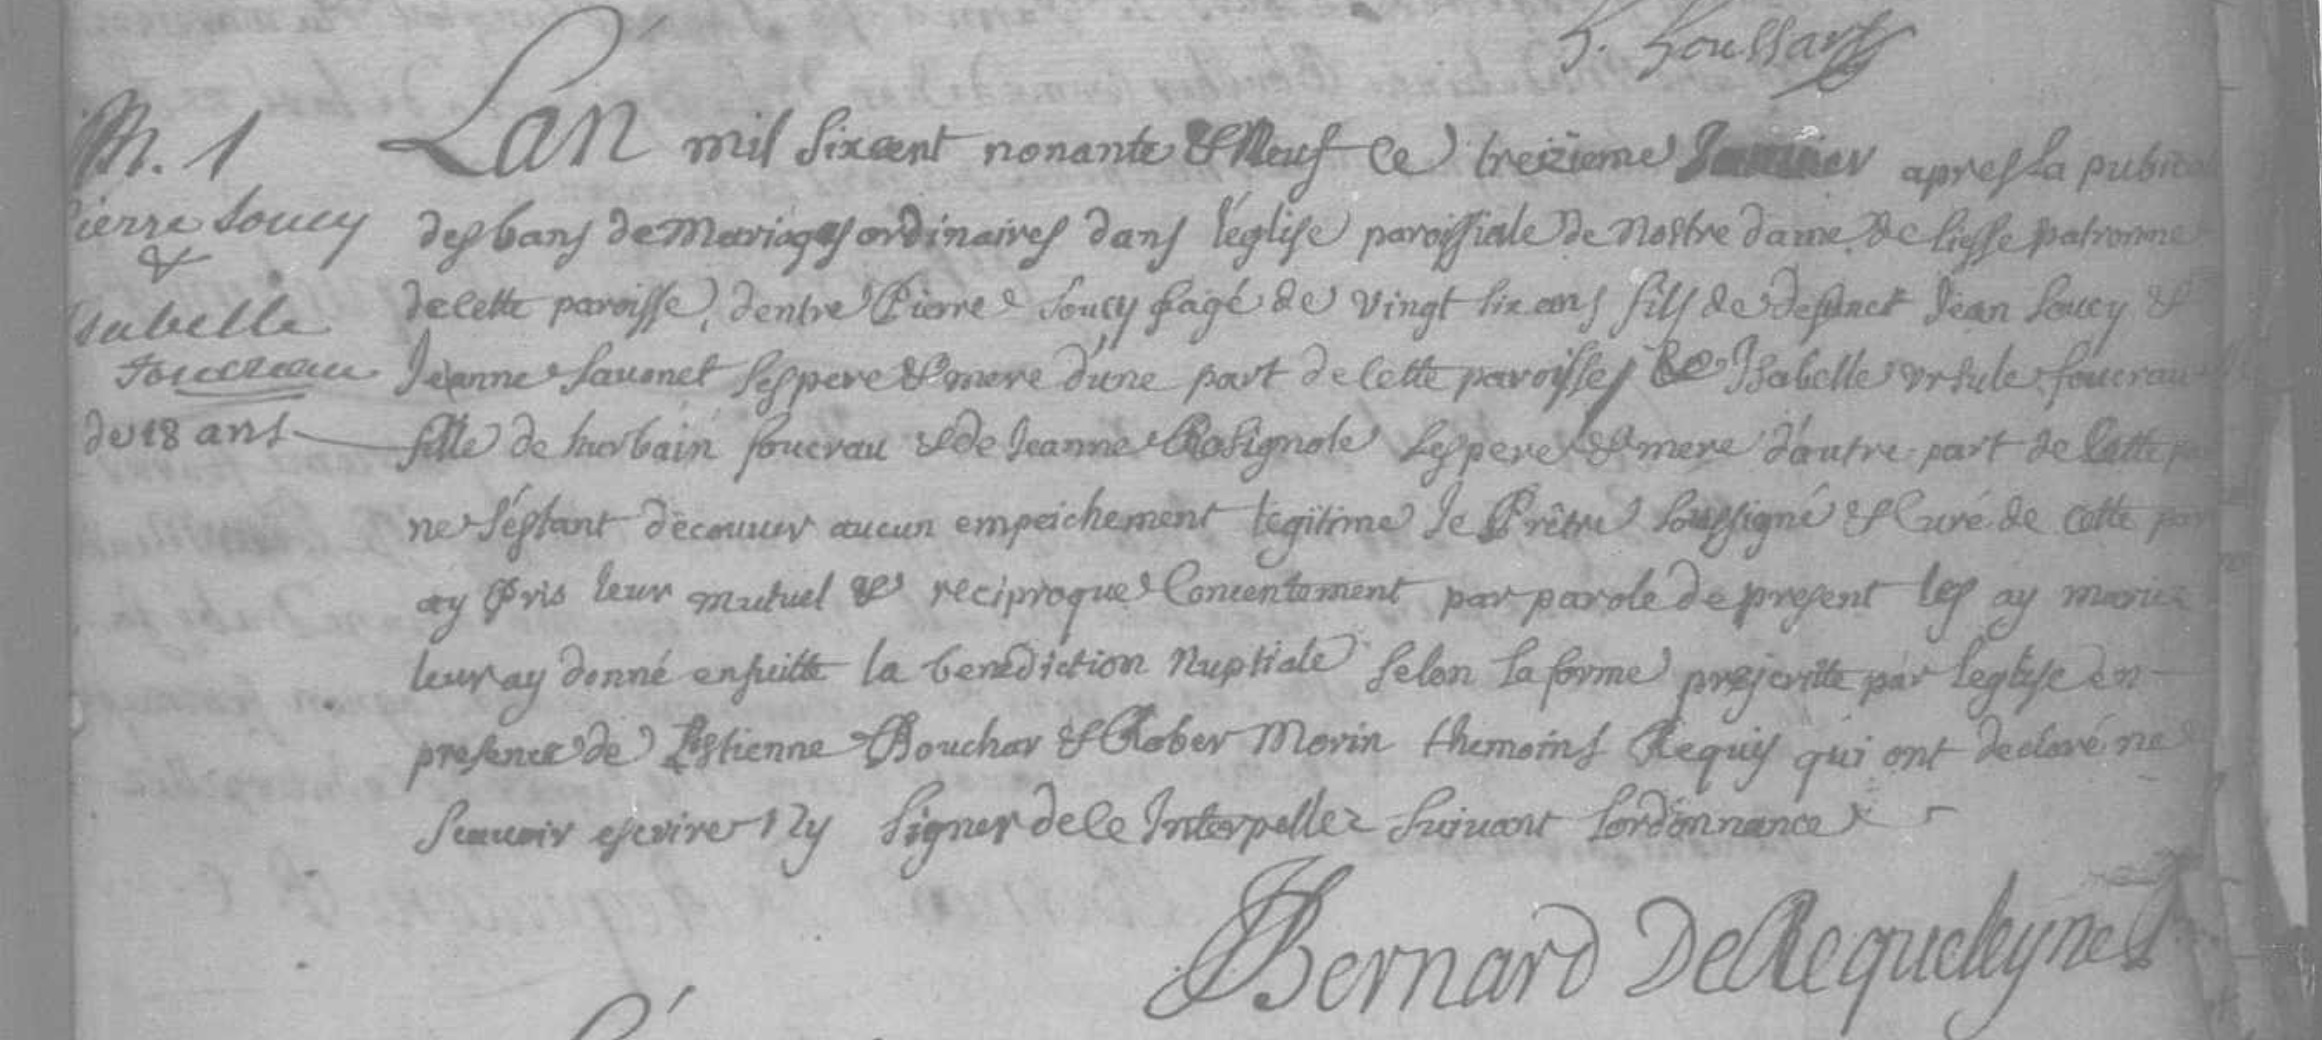 h. houssart
M. 1
Pierre Soucy
&
Isabelle
foucreau
de 18 ans
Lan mil sixcent nonante & Neuf ce treizieme Janvier apres la pubica
des bans de Mariages ordinaires dans l'eglise paroissiale de Nostre dame de liesse patronne
de cette paroisse, dentre Pierre Soucy agé de vingt six ans fils de defunct Jean Soucy &
Jeanne Savonet ses pere & mere d'une part de cette paroisse & Isabelle ursule foucrau
fille de hurbain foucrau & de Jeanne Rosignole ses pere & mere d'autre part de Cette
ne s'estant decouuer aucun empeichement legitime Je Prêtre soussigné & Curé de cette par
ay Pris leur mutuel & reciproque Concentement par parole de present les ay mariez
leur ay donné ensuitte la benediction Nuptiale selon la forme prescritte par leglise en
presence de Estienne Bouchar & Rober Morin themoins Requis qui ont declaré ne
Scauoir escrire Ny signer de ce Interpellez Suivant Lordonnance
Bernard De Requeleyne